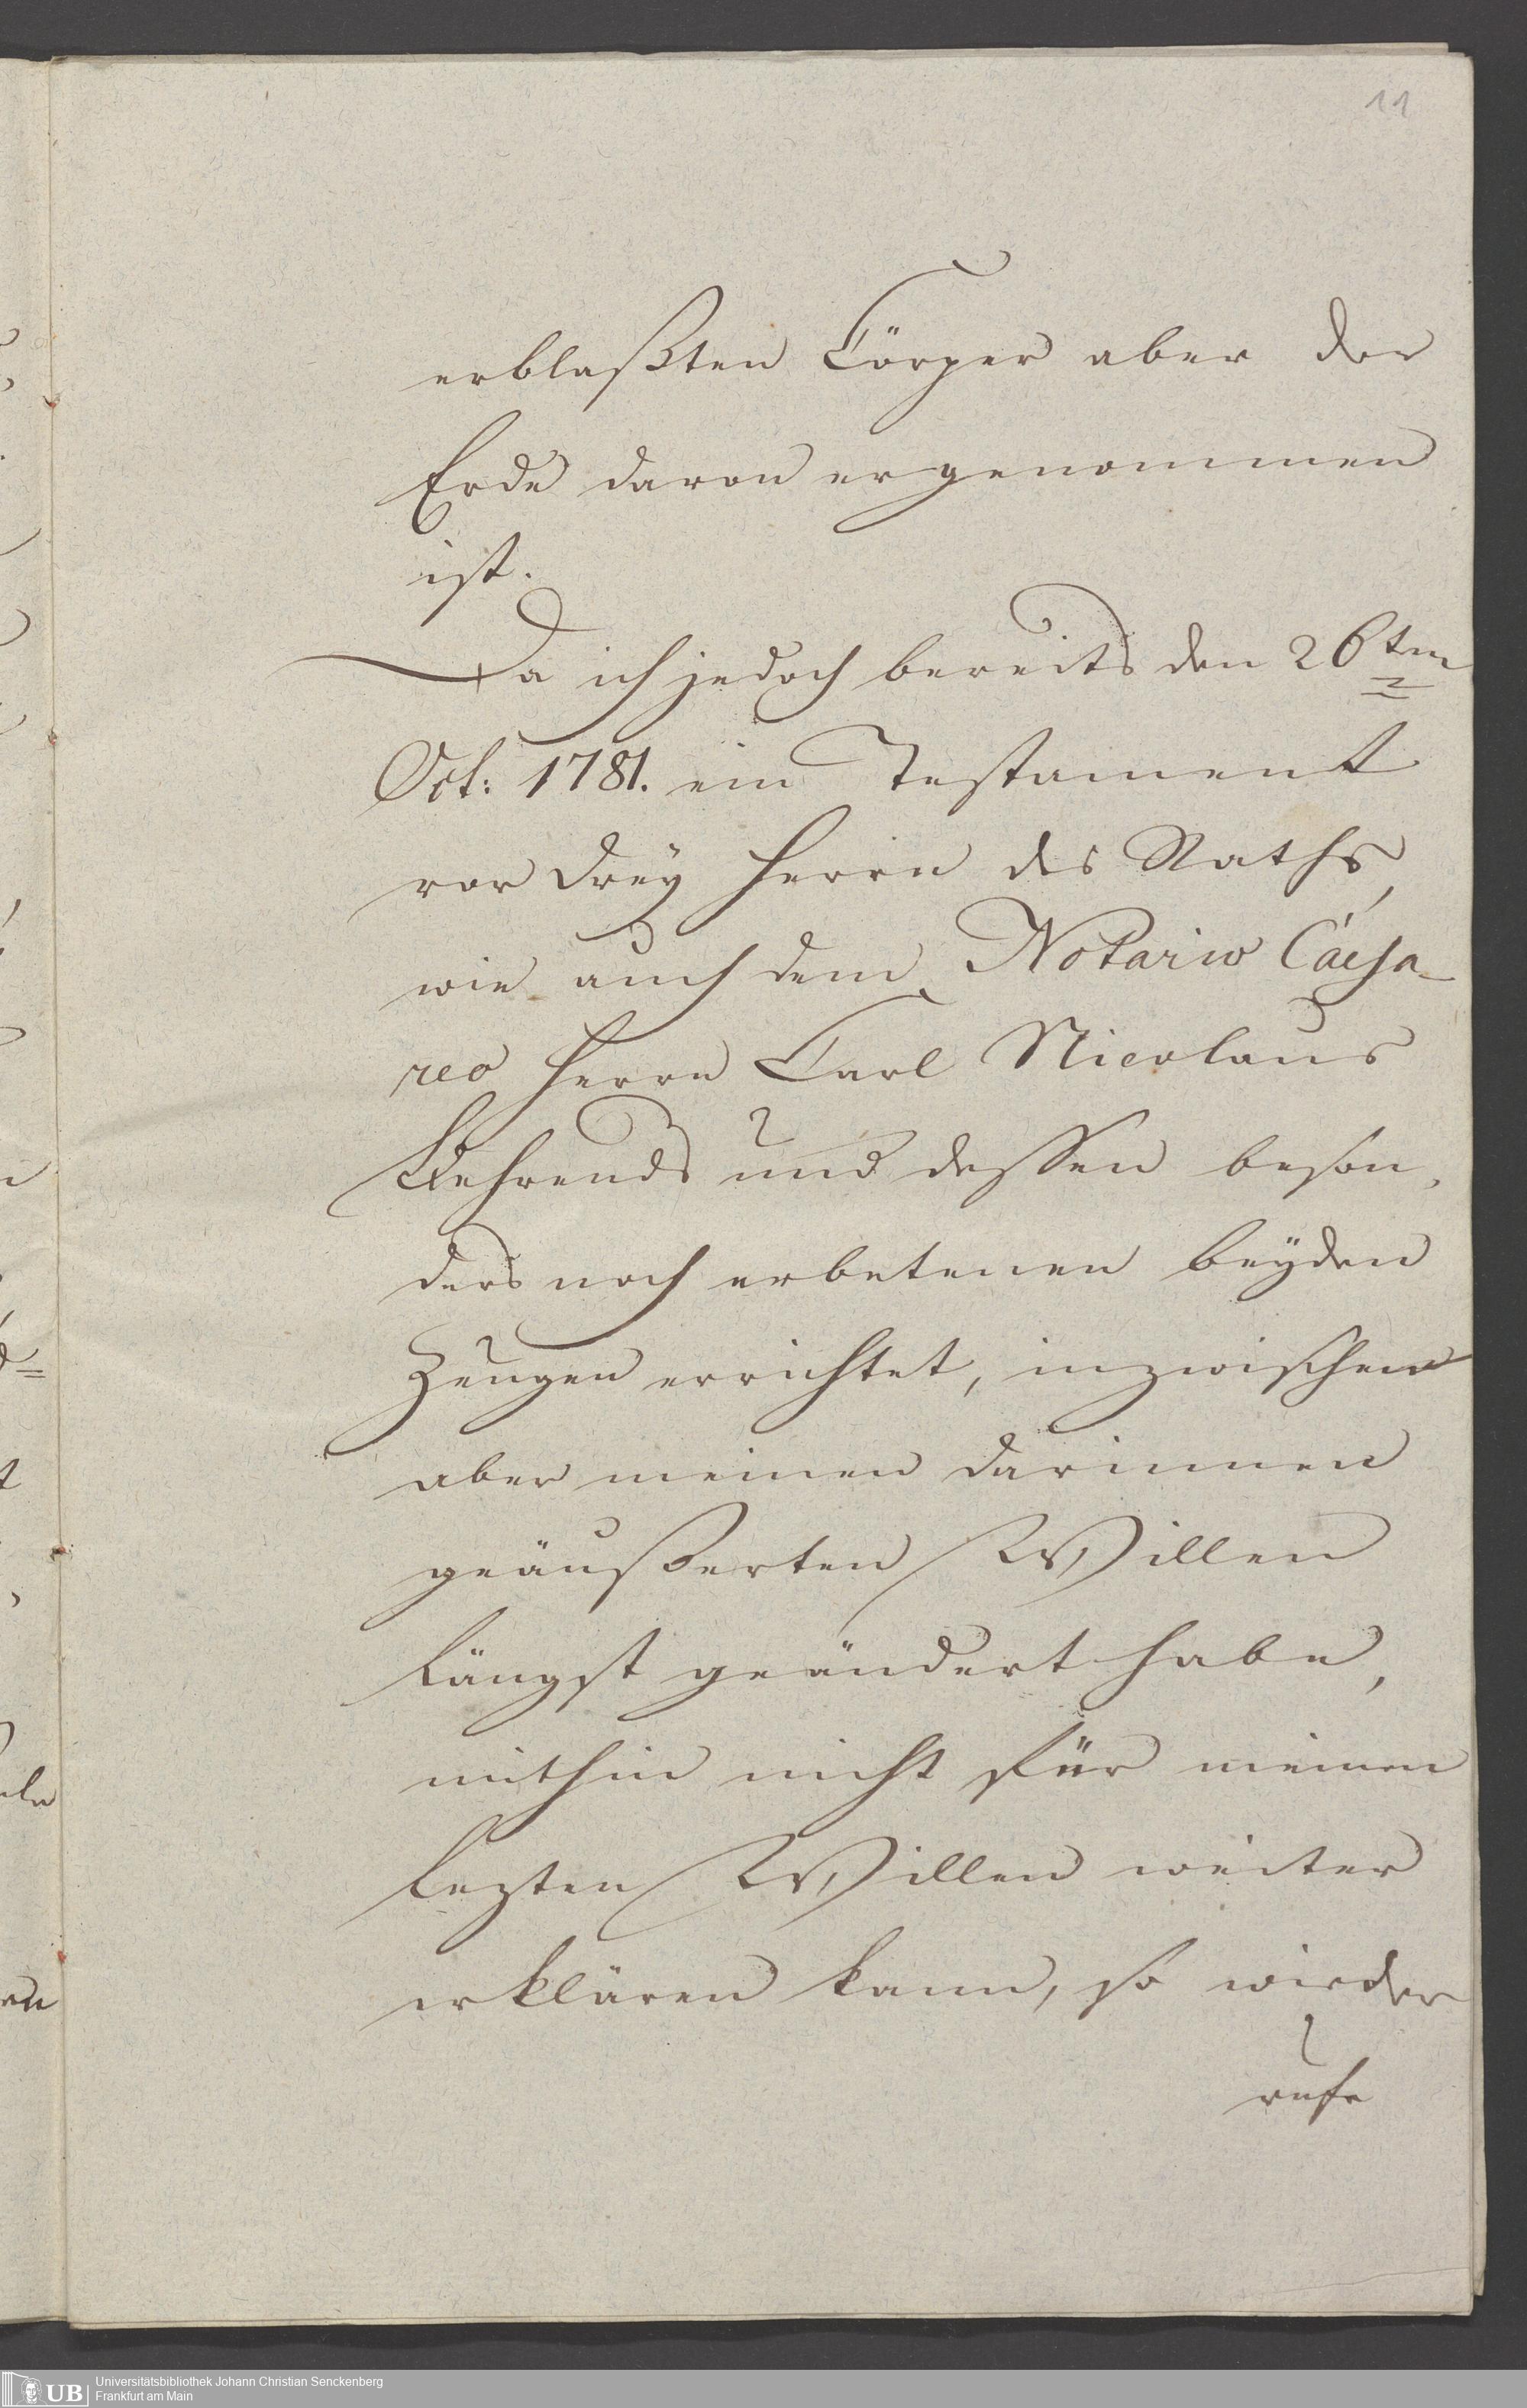 11
erblaßten Cörper aber der
Erde davon er genommen
ist.
Da ich jedoch bereits den 26ten
Oct: 1781. ein Testament
vor drey Herrn des Raths,
wie auch dem Notario Caesa-
reo Herrn Carl Nicolaus
Behrends und dessen beson,
ders noch erbetenen beyden
Zeugen errichtet, inzwischen
aber meinen darinnen
geäußerten Willen
längst geändert habe,
mithin nicht für meinen
lezten Willen weiter
erklären kann, so wieder
rufe
UB Universitätsbibliothek Johann Christian Senckenberg
Frankfurt am Main